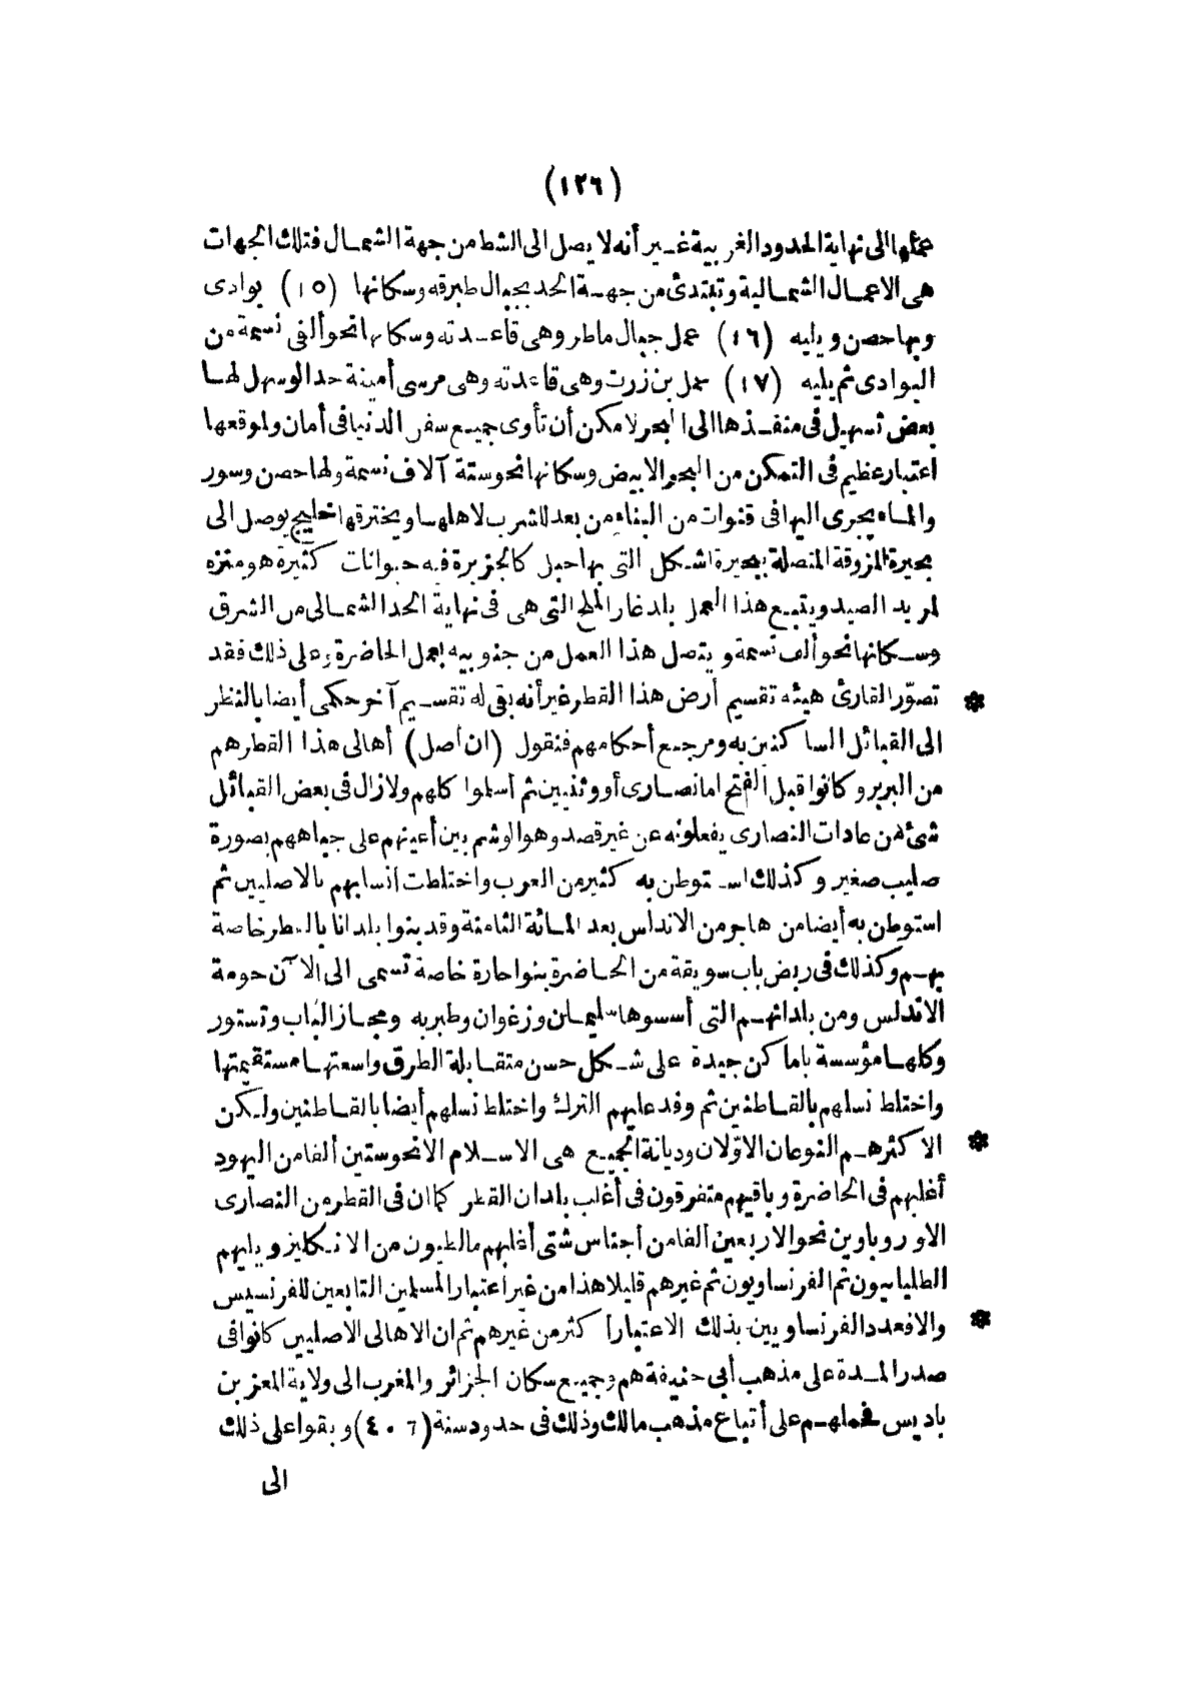 (١٢٦)
عملها الى نهاية الحدود الغربية غير أنه لا يصل الى الشط من جهة الشمال فتلك الجهات
هى الاعمال الشمالية وتبتدئ من جهة الحد بجبال طبرقه وسكانها (١٥) بوادى
وبها حصن ويليه (١٦) عمل جبال ماطر وهى قاعدته وسكانها نحو ألفى نسمة من
البوادى ثم يليه (١٧) عمل بن زرت وهى قاعدته وهى مرسى أمينة جدا لو سهل لها
بعض تسهيل فى منفذها الى البحر لامكن أن تأوى جميع سفن الدنيا فى أمان ولموقعها
اعتبار عظيم فى التمكن من البحر الابيض وسكانها نحو ستة آلاف نسمة ولها حصن وسور
والماء يجرى اليها فى قنوات من البناء من بعد للشرب لاهلها ويخترقها خليج يوصل الى
بحيرة المزوقة المتصلة ببحيرة اشكل التى بها جبل كالجزيرة فيه حيوانات كثيرة هو منتزه
لمريد الصيد ويتبع هذا العمل بلد غار الملح التى هى فى نهاية الحد الشمالى من الشرق
وسكانها نحو ألف نسمة ويتصل هذا العمل من جنوبيه بعمل الحاضرة وعلى ذلك فقد
* تصوّر القارئ هيئة تقسيم أرض هذا القطر غير أنه بقى له تقسيم آخر حكمى أيضا بالنظر
الى القبائل الساكنين به ومرجع أحكامهم فنقول (ان أصل) أهالى هذا القطر هم
من البربر وكانوا قبل الفتح اما نصارى أو وثنيين ثم أسلموا كلهم ولازال فى بعض القبائل
شئ من عادات النصارى يفعلونه عن غير قصد وهو الوشم بين أعينهم على جباههم بصورة
صليب صغير وكذلك استوطن به كثير من العرب واختلطت انسابهم بالاصليين ثم
استوطن به أيضا من هاجر من الاندلس بعد المائة الثامنة وقد بنوا بلدانا بالقطر خاصة
بهم وكذلك فى ربض باب سويقة من الحاضرة بنوا حارة خاصة تسمى الى الآن حومة
الاندلس ومن بلدانهم التى أسسوها سليمان وزغوان وطبربه ومجاز الباب وتستور
وكلها مؤسسة باماكن جيدة على شكل حسن متقابلة الطرق واسعتها مستقيمتها
واختلط نسلهم بالقاطنين ثم وفد عليهم الترك واختلط نسلهم أيضا بالقاطنين ولكن
* الاكثر هم النوعان الاوّلان وديانة الجميع هى الاسلام الا نحو ستين ألفا من اليهود
أغلبهم فى الحاضرة وباقيهم متفرقون فى أغلب بلدان القطر كما ان فى القطر من النصارى
الاوروباوين نحو الاربعين ألفا من أجناس شتى أغلبهم مالطيون من الانكليز ويليهم
الطليانيون ثم الفرنساويون ثم غيرهم قليلا هذا من غير اعتبار المسلمين التابعين للفرنسيس
* والا فعدد الفرنساويين بذلك الاعتبار أكثر من غيرهم ثم ان الاهالى الاصليين كانوا فى
صدر المدة على مذهب أبى حنيفة هم وجميع سكان الجزائر والمغرب الى ولاية المعز بن
باديس فحملهم على أتباع مذهب مالك وذلك فى حدود سنة (٤٠٦) وبقوا على ذلك
الى